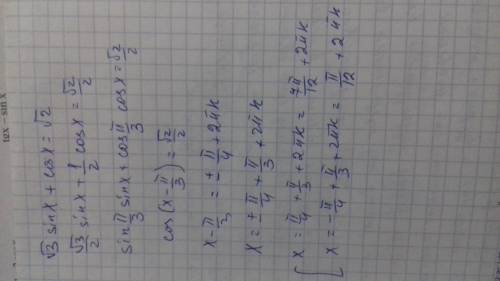 tgx - sin x
√3 sinx + cosx = √2
√3/2 sinx + 1/2 cosx = √2/2
sin π/3 sinx + cos π/3 cosx = √2/2
cos(x - π/3) = √2/2
x - π/3 = ± π/4 + 2πk
x = ± π/4 + π/3 + 2πk
[ x = π/4 + π/3 + 2πk = 7π/12 + 2πk
x = - π/4 + π/3 + 2πk = π/12 + 2πk